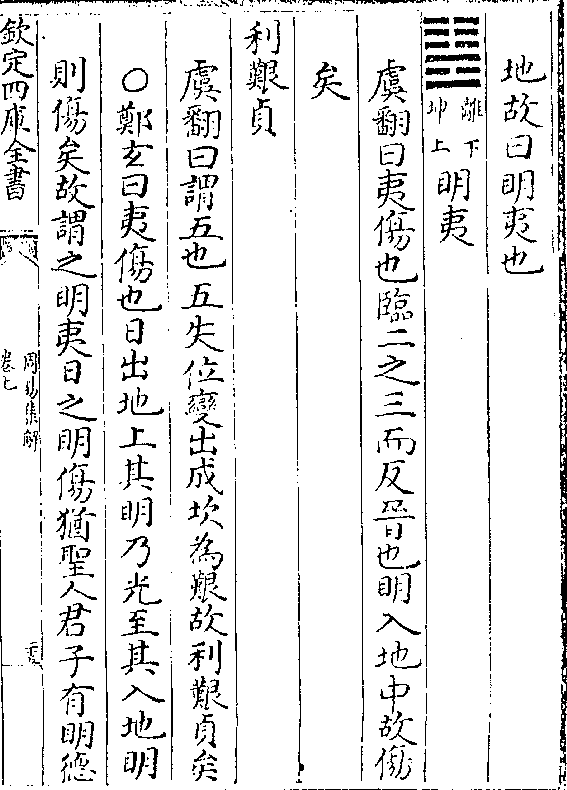 地故曰明夷也
離下
坤上
明夷
虞翻曰夷傷也臨二之三而反晉也明入地中故傷
矣
利艱貞
虞翻曰謂五也五失位變出成坎為艱故利艱貞矣
○鄭玄曰夷傷也日出地上其明乃光至其入地明
則傷矣故謂之明夷日之明傷猶聖人君子有明德
欽定四庫全書
周易集解
卷七